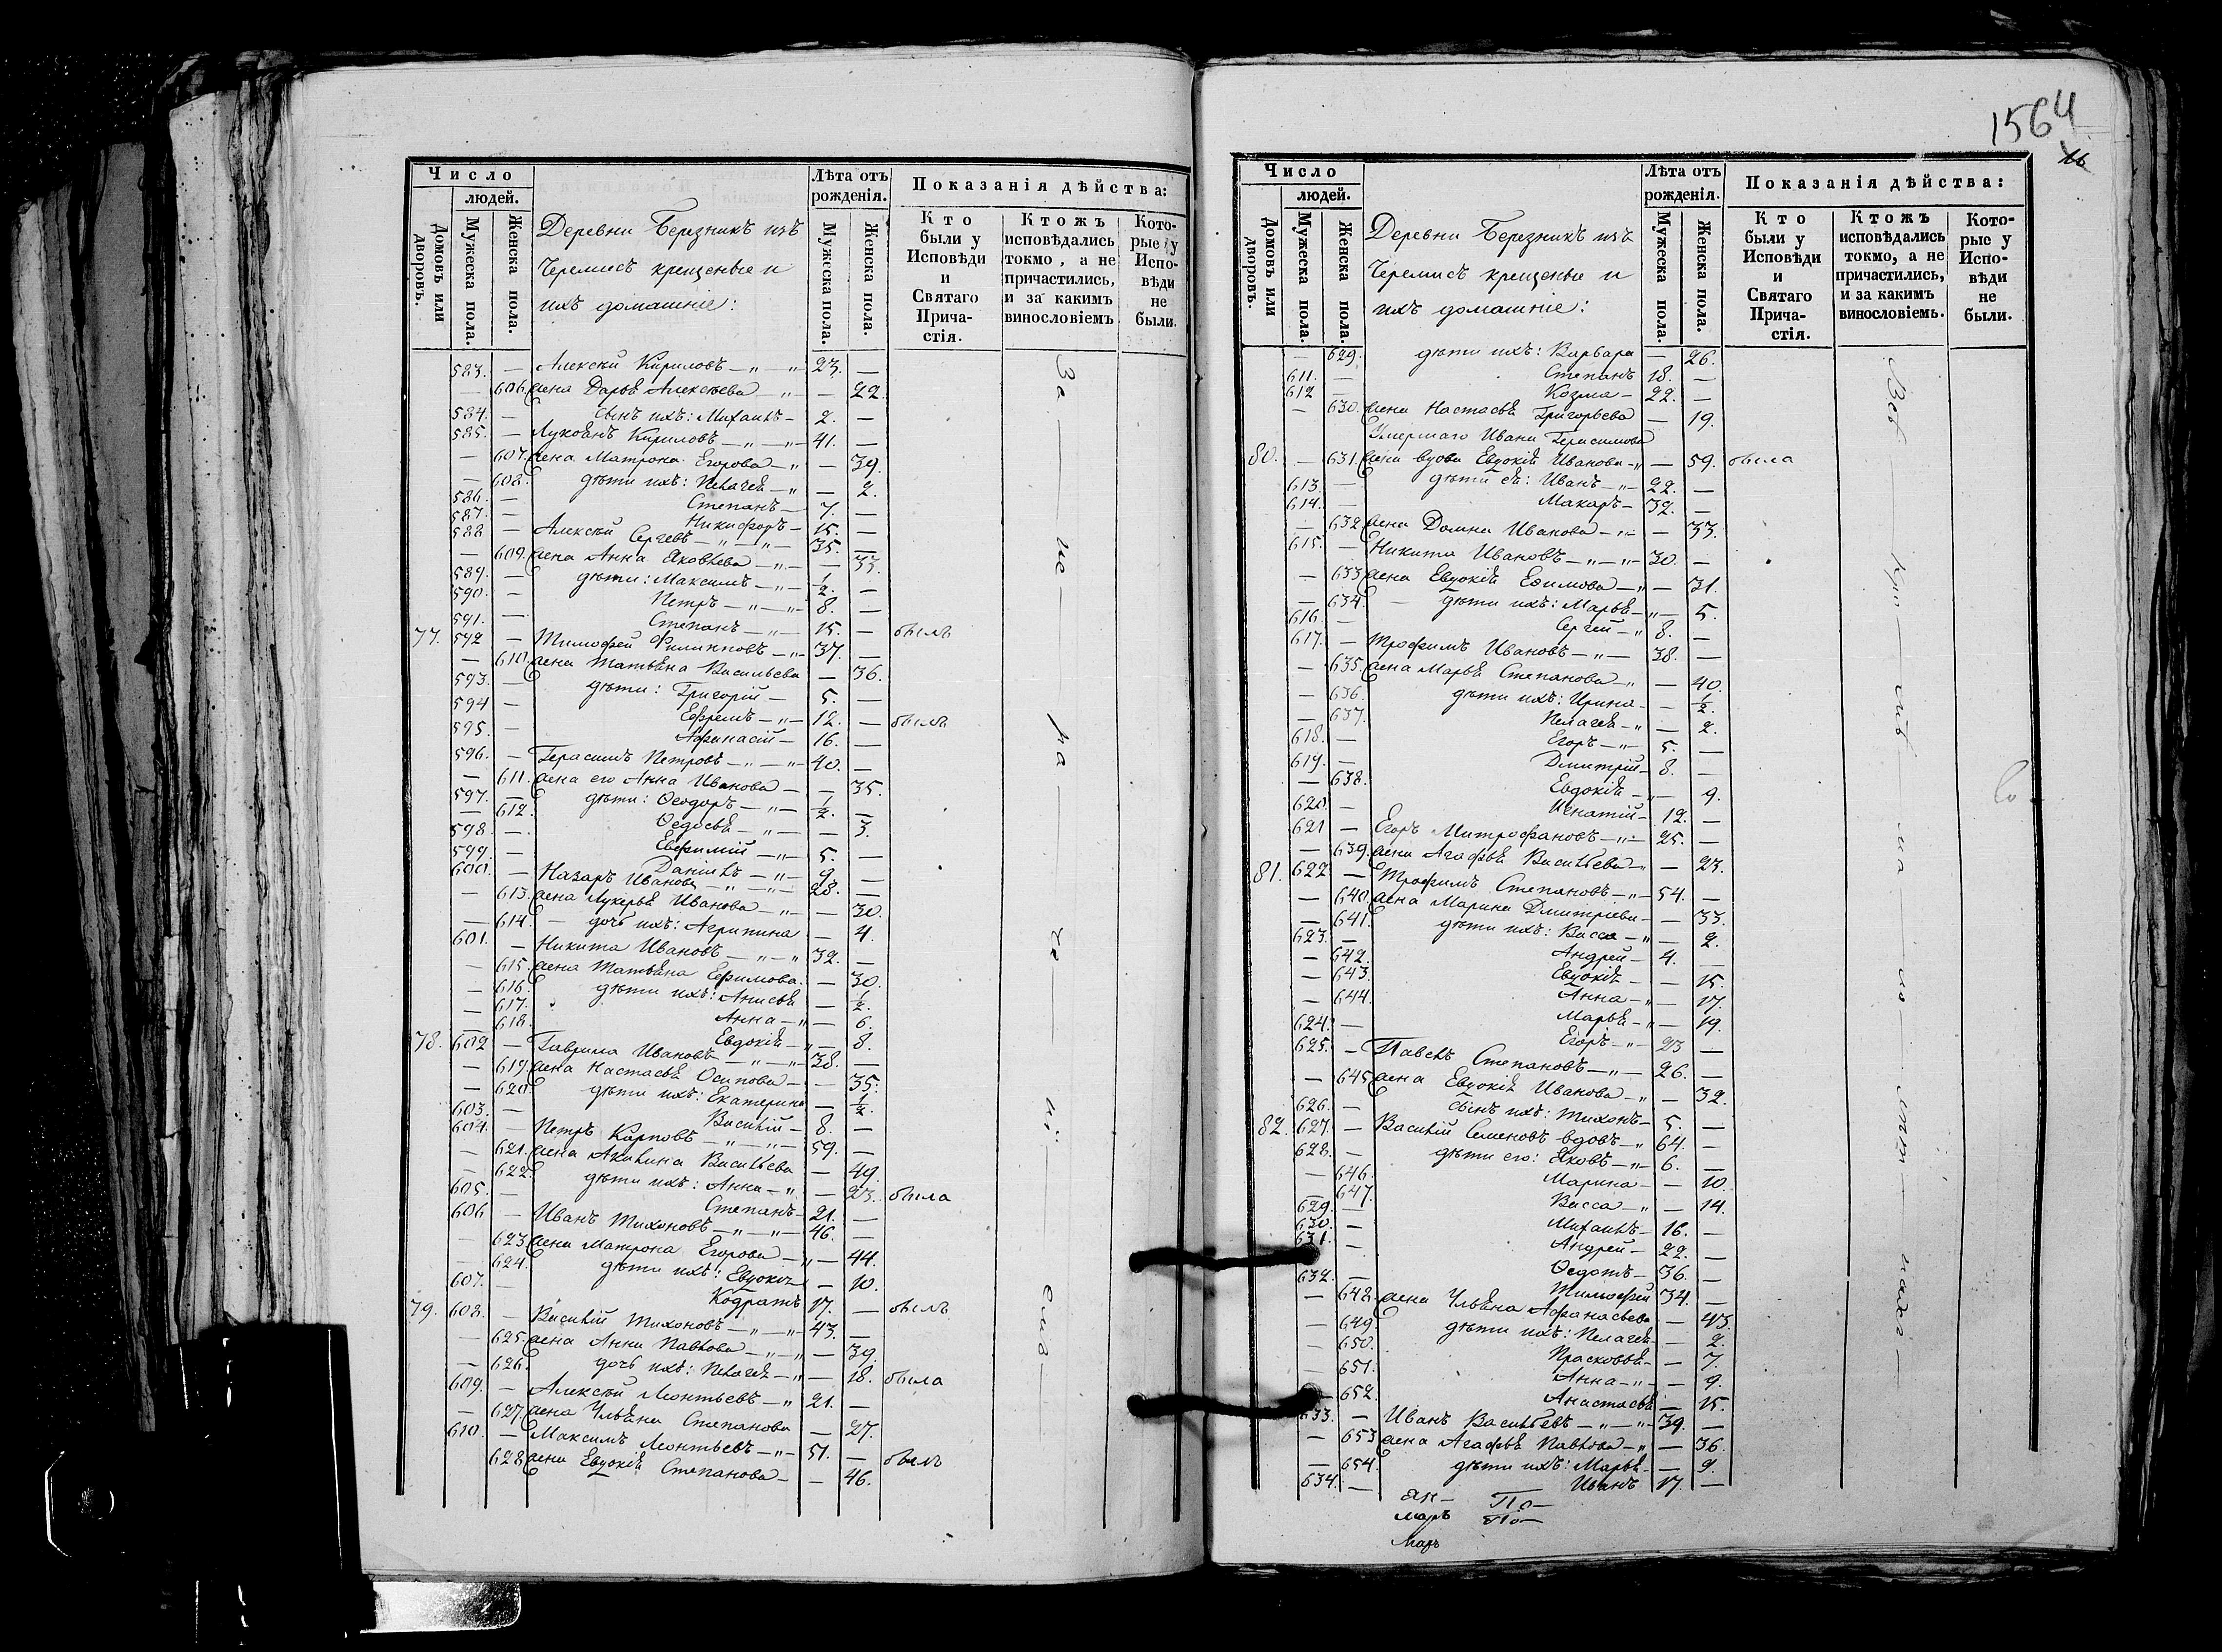 Число
людей.
Домовъ или дворовъ.
Мужеска пола.
Женска пола.
Деревни Березникъ изъ
Черемисъ крещеные и
ихъ домашніе:
Лѣта отъ рожденія.
Мужеска пола.
Женска пола.
Показанія дѣйства:
Кто были у Исповѣди и Святаго Прича-стія.
Ктожъ исповѣдались токмо, а не причастились, и за какимъ винословіемъ
Кото-рые у Испо-вѣди не были.
583. — Алексѣй Кириловъ 23. —
— 606. жена Дарья Алексѣева — 22.
584. — сынъ ихъ: Михаилъ 2. —
585. — Лукоянъ Кириловъ 41. —
— 607. жена Матрона Егорова — 39.
— 608. дѣти ихъ: Пелагея — 2.
586. — Степанъ 7. —
587. — Никифоръ 15. —
588 — Алексѣй Сергѣевъ 35. —
— 609. жена Анна Яковлева — 33.
589. — дѣти: Максимъ 1/2. —
590. — Петръ 8. —
591. — Степанъ 15. — былъ
77. 592 — Тимофей Филипповъ 37. —
— 610. жена Татьяна Васильева — 36.
593. — дѣти: Григорій 5. —
594 — Ефремъ 12. — былъ
595. — Афанасій 16. —
596. — Герасимъ Петровъ 40. —
— 611. жена его Анна Иванова — 35.
597. — дѣти: Ѳеодоръ 1/2. —
— 612. Ѳедосья — 3.
598. — Евфимій 5. —
599. — Даніилъ 9 —
600. — Назаръ Ивановъ 28. —
— 613. жена Лукерья Иванова — 30.
— 614. дочь ихъ: Агрипина — 4.
601. — Никита Ивановъ 32. —
— 615. жена Татьяна Ефимова — 30.
— 616. дѣти ихъ: Анисья — 1/2.
— 617. Анна — 6.
— 618. Евдокія — 8.
78. 602 — Гаврила Ивановъ 38. —
— 619. жена Настасья Осипова — 35.
— 620. дѣти ихъ: Екатерина — 1/2.
603. — Василій 8. —
604. — Петръ Карповъ 59. —
— 621. жена Акилина Васильева — 49.
— 622. дѣти ихъ: Анна — 23. была
605. — Степанъ 21. —
606 — Иванъ Тихоновъ 46. —
— 623. жена Матрона Егорова — 44.
— 624. дѣти ихъ: Евдокія — 10.
607. — Кодратъ 17. — былъ
79. 608. — Василій Тихоновъ 43. —
— 625. жена Анна Павлова — 39.
— 626. дочь ихъ: Пелагея — 18. была
609. — Алексѣй Леонтьевъ 21. —
— 627. жена Ульяна Степанова — 27.
610. — Максимъ Леонтьевъ 51. — былъ
628 жена Евдокія Степанова — 46.
За — не — ра — че — ні — емъ
1564
Число
людей.
Домовъ или дворовъ.
Мужеска пола.
Женска пола.
Деревни Березникъ изъ
Черемисъ крещеные и
ихъ домашніе:
Лѣта отъ рожденія.
Мужеска пола.
Женска пола.
Показанія дѣйства:
Кто были у Исповѣди и Святаго Прича-стія.
Ктожъ исповѣдались токмо, а не причастились, и за какимъ винословіемъ.
Кото-рые у Испо-вѣди не были.
— 629. дѣти ихъ: Варвара — 26.
611. — Степанъ 18. —
612 — Козма 22. —
— 630. жена Настасья Григорьева — 19.
Умершаго Ивана Герасимова
80. — 631. жена вдова Евдокія Иванова — 59. была
613. — дѣти ея: Иванъ 22. —
614. — Макаръ 32. —
— 632. жена Домна Иванова — 33.
615. — Никита Ивановъ 30. —
— 633 жена Евдокія Ефимова — 31.
— 634. дѣти ихъ: Марья — 5.
616. — Сергей 8. —
617. — Трофимъ Ивановъ 38. —
— 635. жена Марья Степанова — 40.
— 636. дѣти ихъ: Ирина — 1/2.
— 637. Пелагея — 2.
618. — Егоръ 5. —
619. — Дмитрій 8. —
— 638. Евдокія — 9.
620. — Игнатій 12. —
621 — Егоръ Митрофановъ 25. —
— 639. жена Агафья Васильева — 23.
81. 622 — Трофимъ Степановъ 54. —
— 640. жена Марина Дмитріева — 33.
— 641. дѣти ихъ: Васса — 2.
623. — Андрей 4. —
— 642. Евдокія — 15.
— 643. Анна — 17.
— 644. Марья — 19.
624. — Егоръ 23 —
625. — Павелъ Степановъ 26. —
— 645 жена Евдокія Иванова — 32.
626. — сынъ ихъ: Тихонъ 5. —
82. 627. — Василій Семеновъ вдовъ 64. —
628. — дѣти его: Яковъ 6. —
— 646. Марина — 10.
— 647. Васса — 14.
629. — Михаилъ 16. —
630. — Андрей 22. —
631. — Ѳедотъ 36. —
632. — Тимофей 34. —
— 648. жена Ульяна Афанасьева — 43.
— 649. дѣти ихъ: Пелагея — 2.
— 650. Прасковья — 7.
— 651. Анна — 9.
— 652. Анастасья — 15.
633. — Иванъ Васильевъ 39. —
— 653 жена Агафья Павлова — 36.
— 654. дѣти ихъ: Марья — 9.
634. — Иванъ 17. —